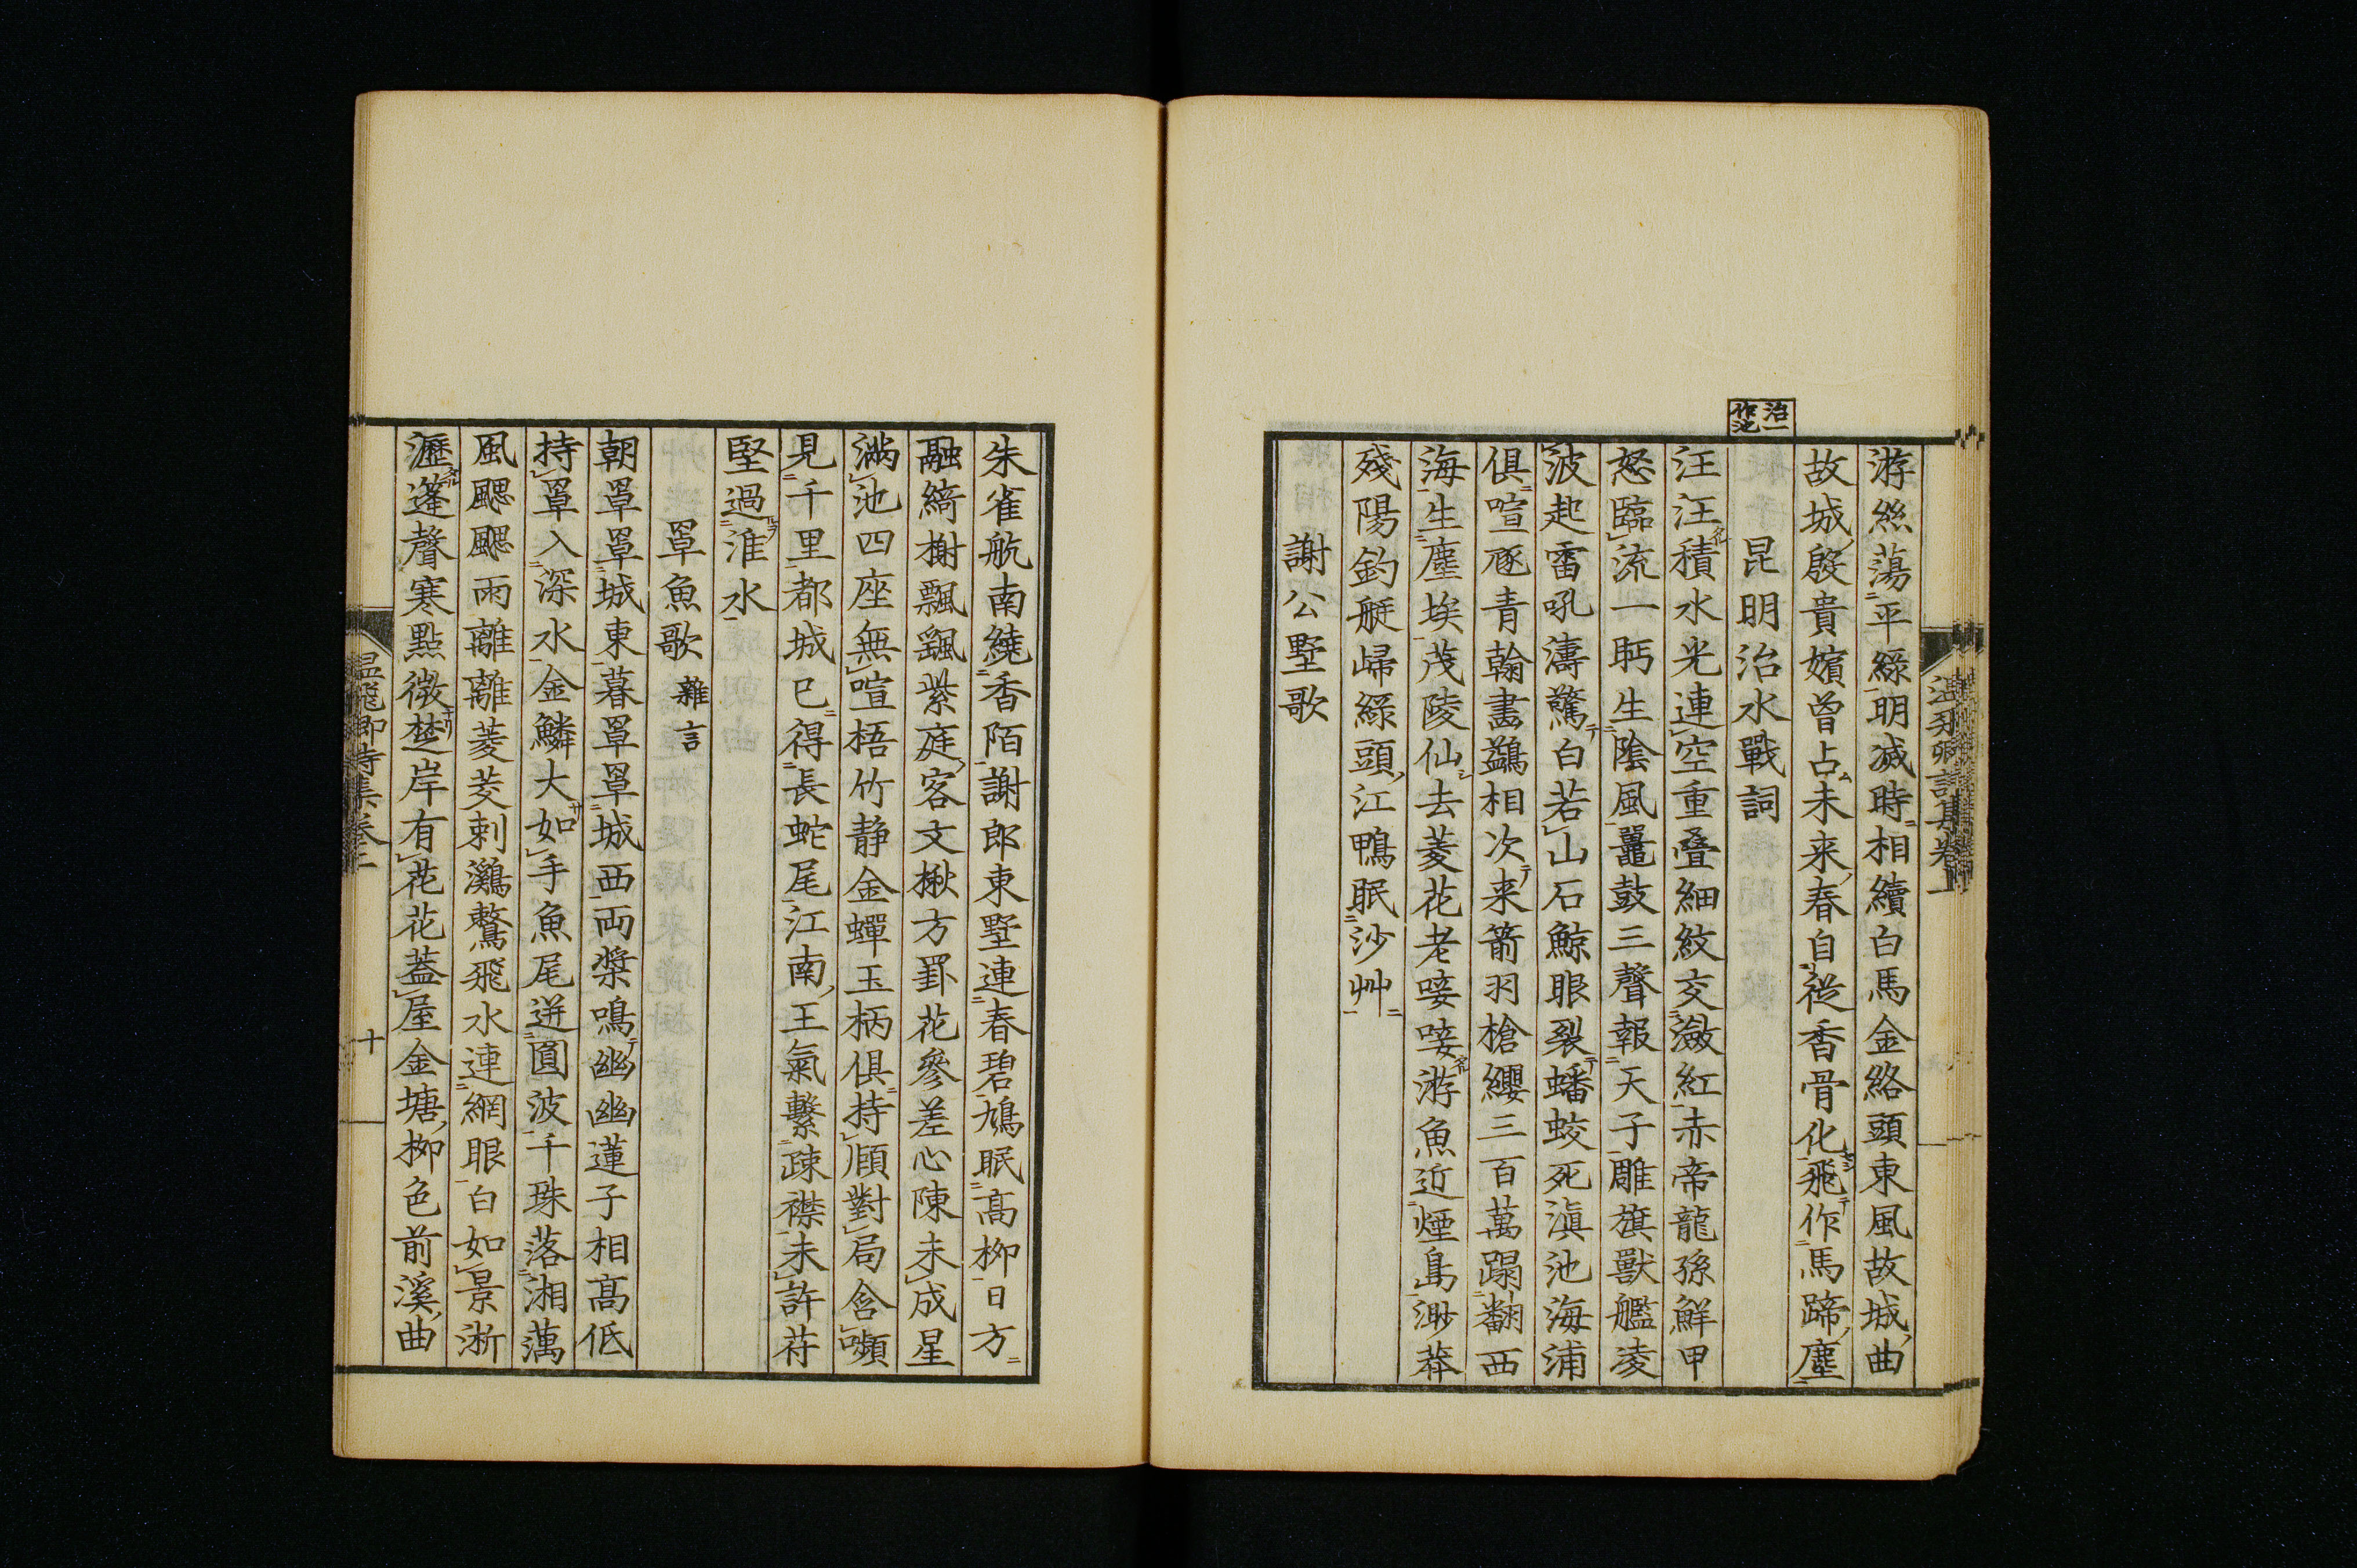 游絲蕩平綠明滅時相續白馬金絡頭東風故城曲
故城殷貴嬪曾占未来春自從香骨化飛作馬蹄塵
昆明治水戰詞
治一作池
汪汪積水光連空重疊細紋交瀲紅赤帝龍孫鮮甲
怒臨流一眄生陰風鼉鼓三聲報天子雕旗獸艦凌
波起雷吼濤驚白若山石鯨眼裂蟠蛟死滇池海浦
俱喧豗青翰畫鷁相次来箭羽槍纓三百萬踢翻西
海生塵埃茂陵仙去菱花老唼唼游魚近煙島渺莽
殘陽釣艇歸綠頭江鴨眠沙艸
謝公墅歌
朱雀航南繞香陌謝郎東墅連春碧鳩眠高栁日方
融綺榭飄颻紫庭客文楸方罫花參差心陳未成星
滿池四座無喧梧竹静金蟬玉柄俱持頤對局含嚬
見千里都城已得長蛇尾江南王氣繫疎襟未許苻
堅過淮水
罩魚歌 雜言
朝罩罩城東暮罩罩城西両槳鳴幽幽蓮子相高低
持罩入深水金鱗大如手魚尾迸圓波千珠落湘藕
風颸颸雨離離菱芡刺鸂鶒飛水連網眼白如景淅
瀝篷聲寒點微楚岸有花花蓋屋金塘栁色前溪曲
温飛卿詩集卷上
十